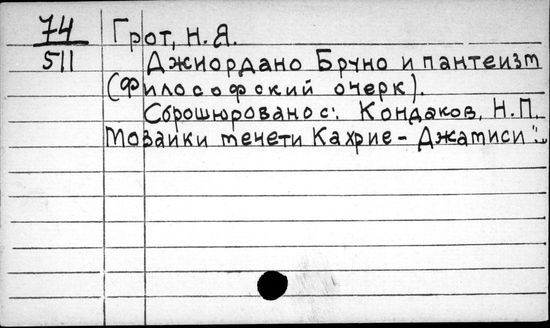 74 Грот, Н. Я.
511 Джиордано Бруно и пантеизм
(философский очерк).
Сброшюрованос: Кондаков, Н.П.
Мозаики мечети Кахрие - Джамиси"..